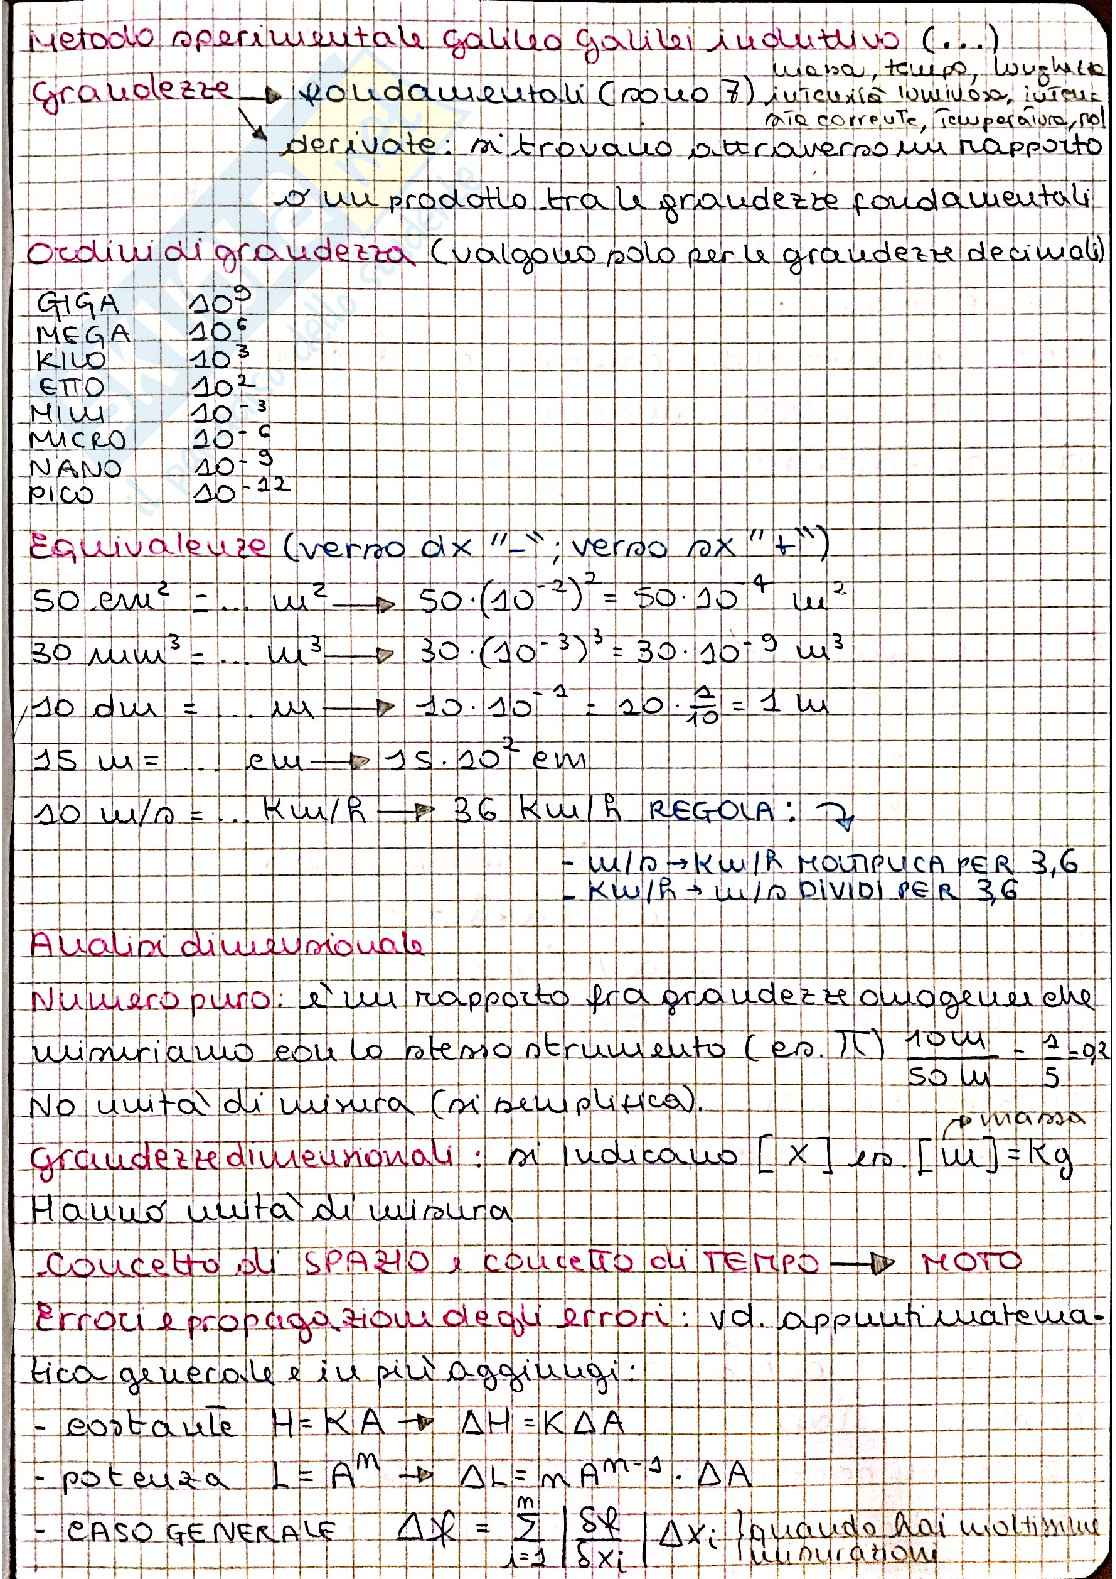 Metodo sperimentale Galileo Galilei induttivo (...)
massa, tempo, lunghezza
Grandezze → fondamentali (sono 7) intensità luminosa, inten
sità corrente, temperatura, mol
derivate: si trovano attraverso un rapporto
o un prodotto tra le grandezze fondamentali
Ordini di grandezza (valgono solo per le grandezze decimali)
GIGA 10⁹
MEGA 10⁶
KILO 10³
ETTO 10²
MILLI 10⁻³
MICRO 10⁻⁶
NANO 10⁻⁹
PICO 10⁻¹²
Equivalenze (verso dx "-"; verso sx "+")
50 cm² = ... m² → 50·(10⁻²)² = 50·10⁻⁴ m²
30 mm³ = ... m³ → 30·(10⁻³)³ = 30·10⁻⁹ m³
10 dm = ... m → 10·10⁻¹ = 10·1/10 = 1 m
15 m = ... cm → 15·10² cm
10 m/s = ... Km/h → 36 Km/h REGOLA:
- m/s → Km/h MOLTIPLICA PER 3,6
- Km/h → m/s DIVIDI PER 3,6
Analisi dimensionale
Numero puro: è un rapporto fra grandezze omogenee che
misuriamo con lo stesso strumento (es. π) 10m/50m = 1/5 = 0,2
No unità di misura (si semplifica).
→ massa
Grandezze dimensionali: si indicano [x] es. [m] = Kg
Hanno unità di misura
Concetto di SPAZIO e concetto di TEMPO → MOTO
Errori e propagazioni degli errori: vd. appunti matema-
tica generale e in più aggiungi:
- costante H = KA → ΔH = KΔA
- potenza L = Aᵐ → ΔL = mAᵐ⁻¹·ΔA
- CASO GENERALE Δf = Σ m i=1 |δf/δxi| Δxi quando hai moltissime
misurazioni